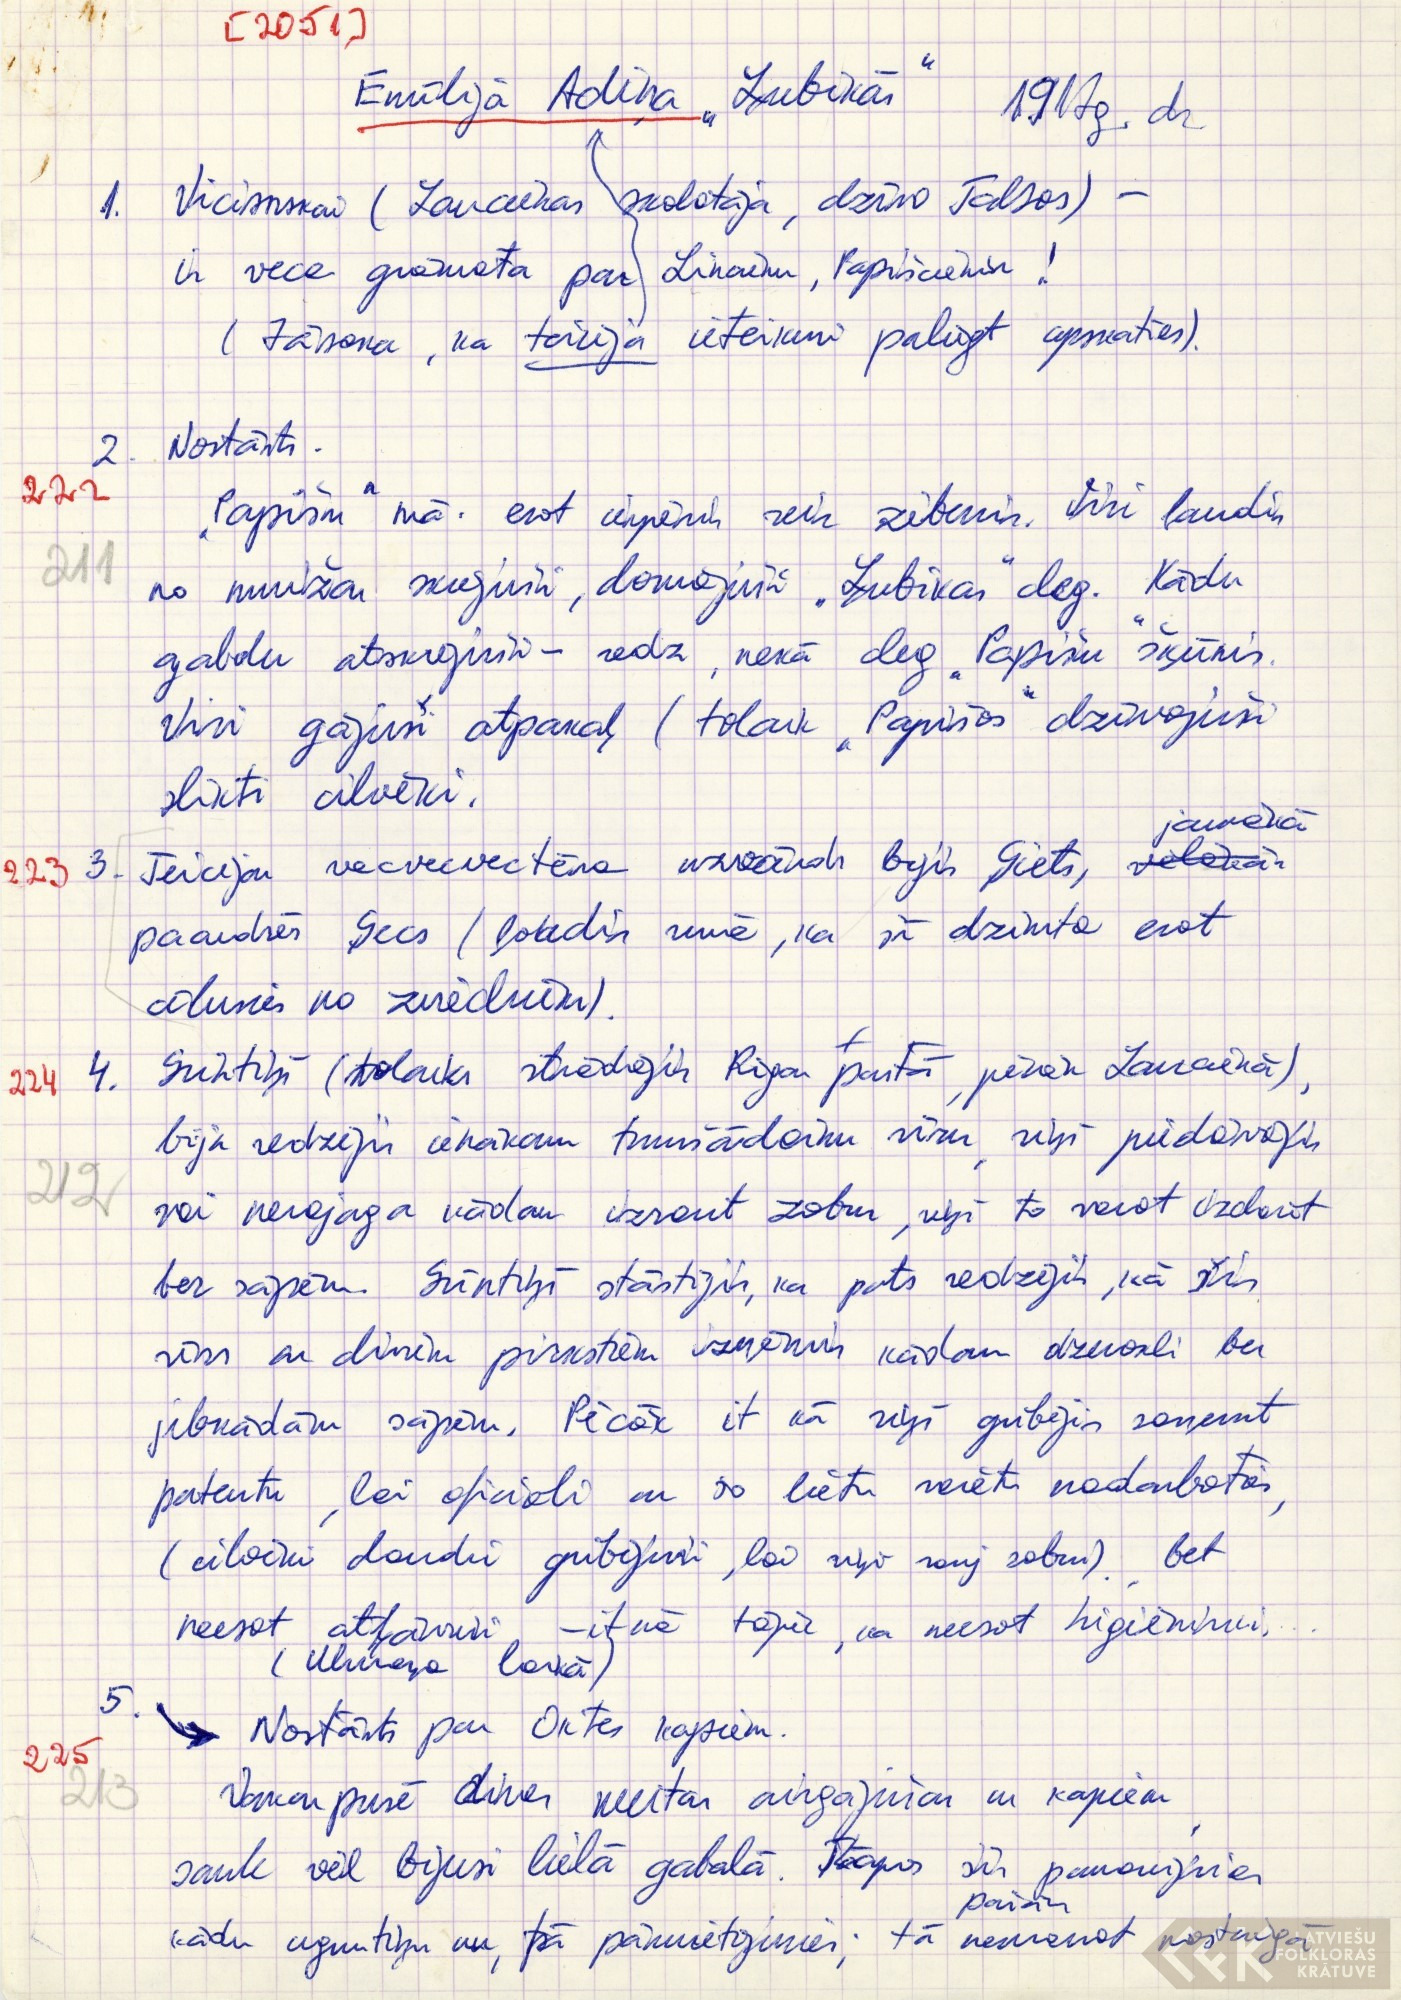 [2051]
Emīlija Adiņa „Ļubikās“ 1917.g. dz.
1. Vicinskai (Laucienas skolotāja, dzīvo Talsos) –
ir veca grāmata par Linaiņu, Papišciemu!
(Jāsaka, ka teicēja ieteikusi palūgt apskatīt).
2. Nostāsts.
222
„Papišu“ mā. esot iespēris reiz zibens. Visi laudis
211
no muižas skrējuši, domājuši „Ļubikas“ deg. Kādu
gabalu atskrējuši – redz, nekā deg „Papišu“ šķūnis.
Visi gājuši atpakaļ (tolaik „Papišos“ dzīvojuši
slikti cilvēki.
jaunākā
223 3. Teicējas vecvecvectēva uzvārds bijis Giets,
paaudzēs Gecs (ļaudis runā, ka šī dzimta esot
cēlusies no zviedriem).
224 4. Sūntiņš (tolaiks strādājis Rīgas pastā, pēcāk Laucienā),
bijis redzējis ienākam tumšādainu vīru, viņš piedāvājis
212
vai nevajaga kādam izraut zobu, viņš to varot izdarīt
bez sāpēm. Sūntiņš stāstījis, ka pats redzējis, kā šis
vīrs ar diviem pirkstiem izņēmis kādam dzerokli bez
jebkādām sāpēm. Pēcāk it kā viņš gribējis saņemt
patentu, lai oficiāli ar šo lietu varētu nodarboties,
(cilvēki daudzi gribējuši, lai viņš rauj zobus), bet
neesot atļāvuši – it kā tāpēc, ka neesot higiēniski...
(Ulmaņa laikā)
5. Nostāsts par Oktes kapiem.
225
213
Vakarpusē divas meitas aizgājušas uz kapiem,
saule vēl bijusi lielā gabalā. Kapos šīs pamanījušas
pašām
kādu uguntiņu un tā pārmetījušies; tā nemanot nostaigā
LFK LATVIEŠU
FOLKLORAS
KRĀTUVE